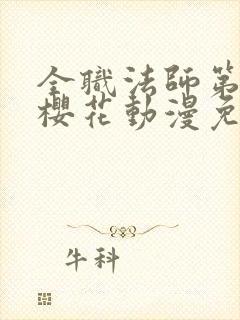 全職法師第
櫻花動漫免
牛科